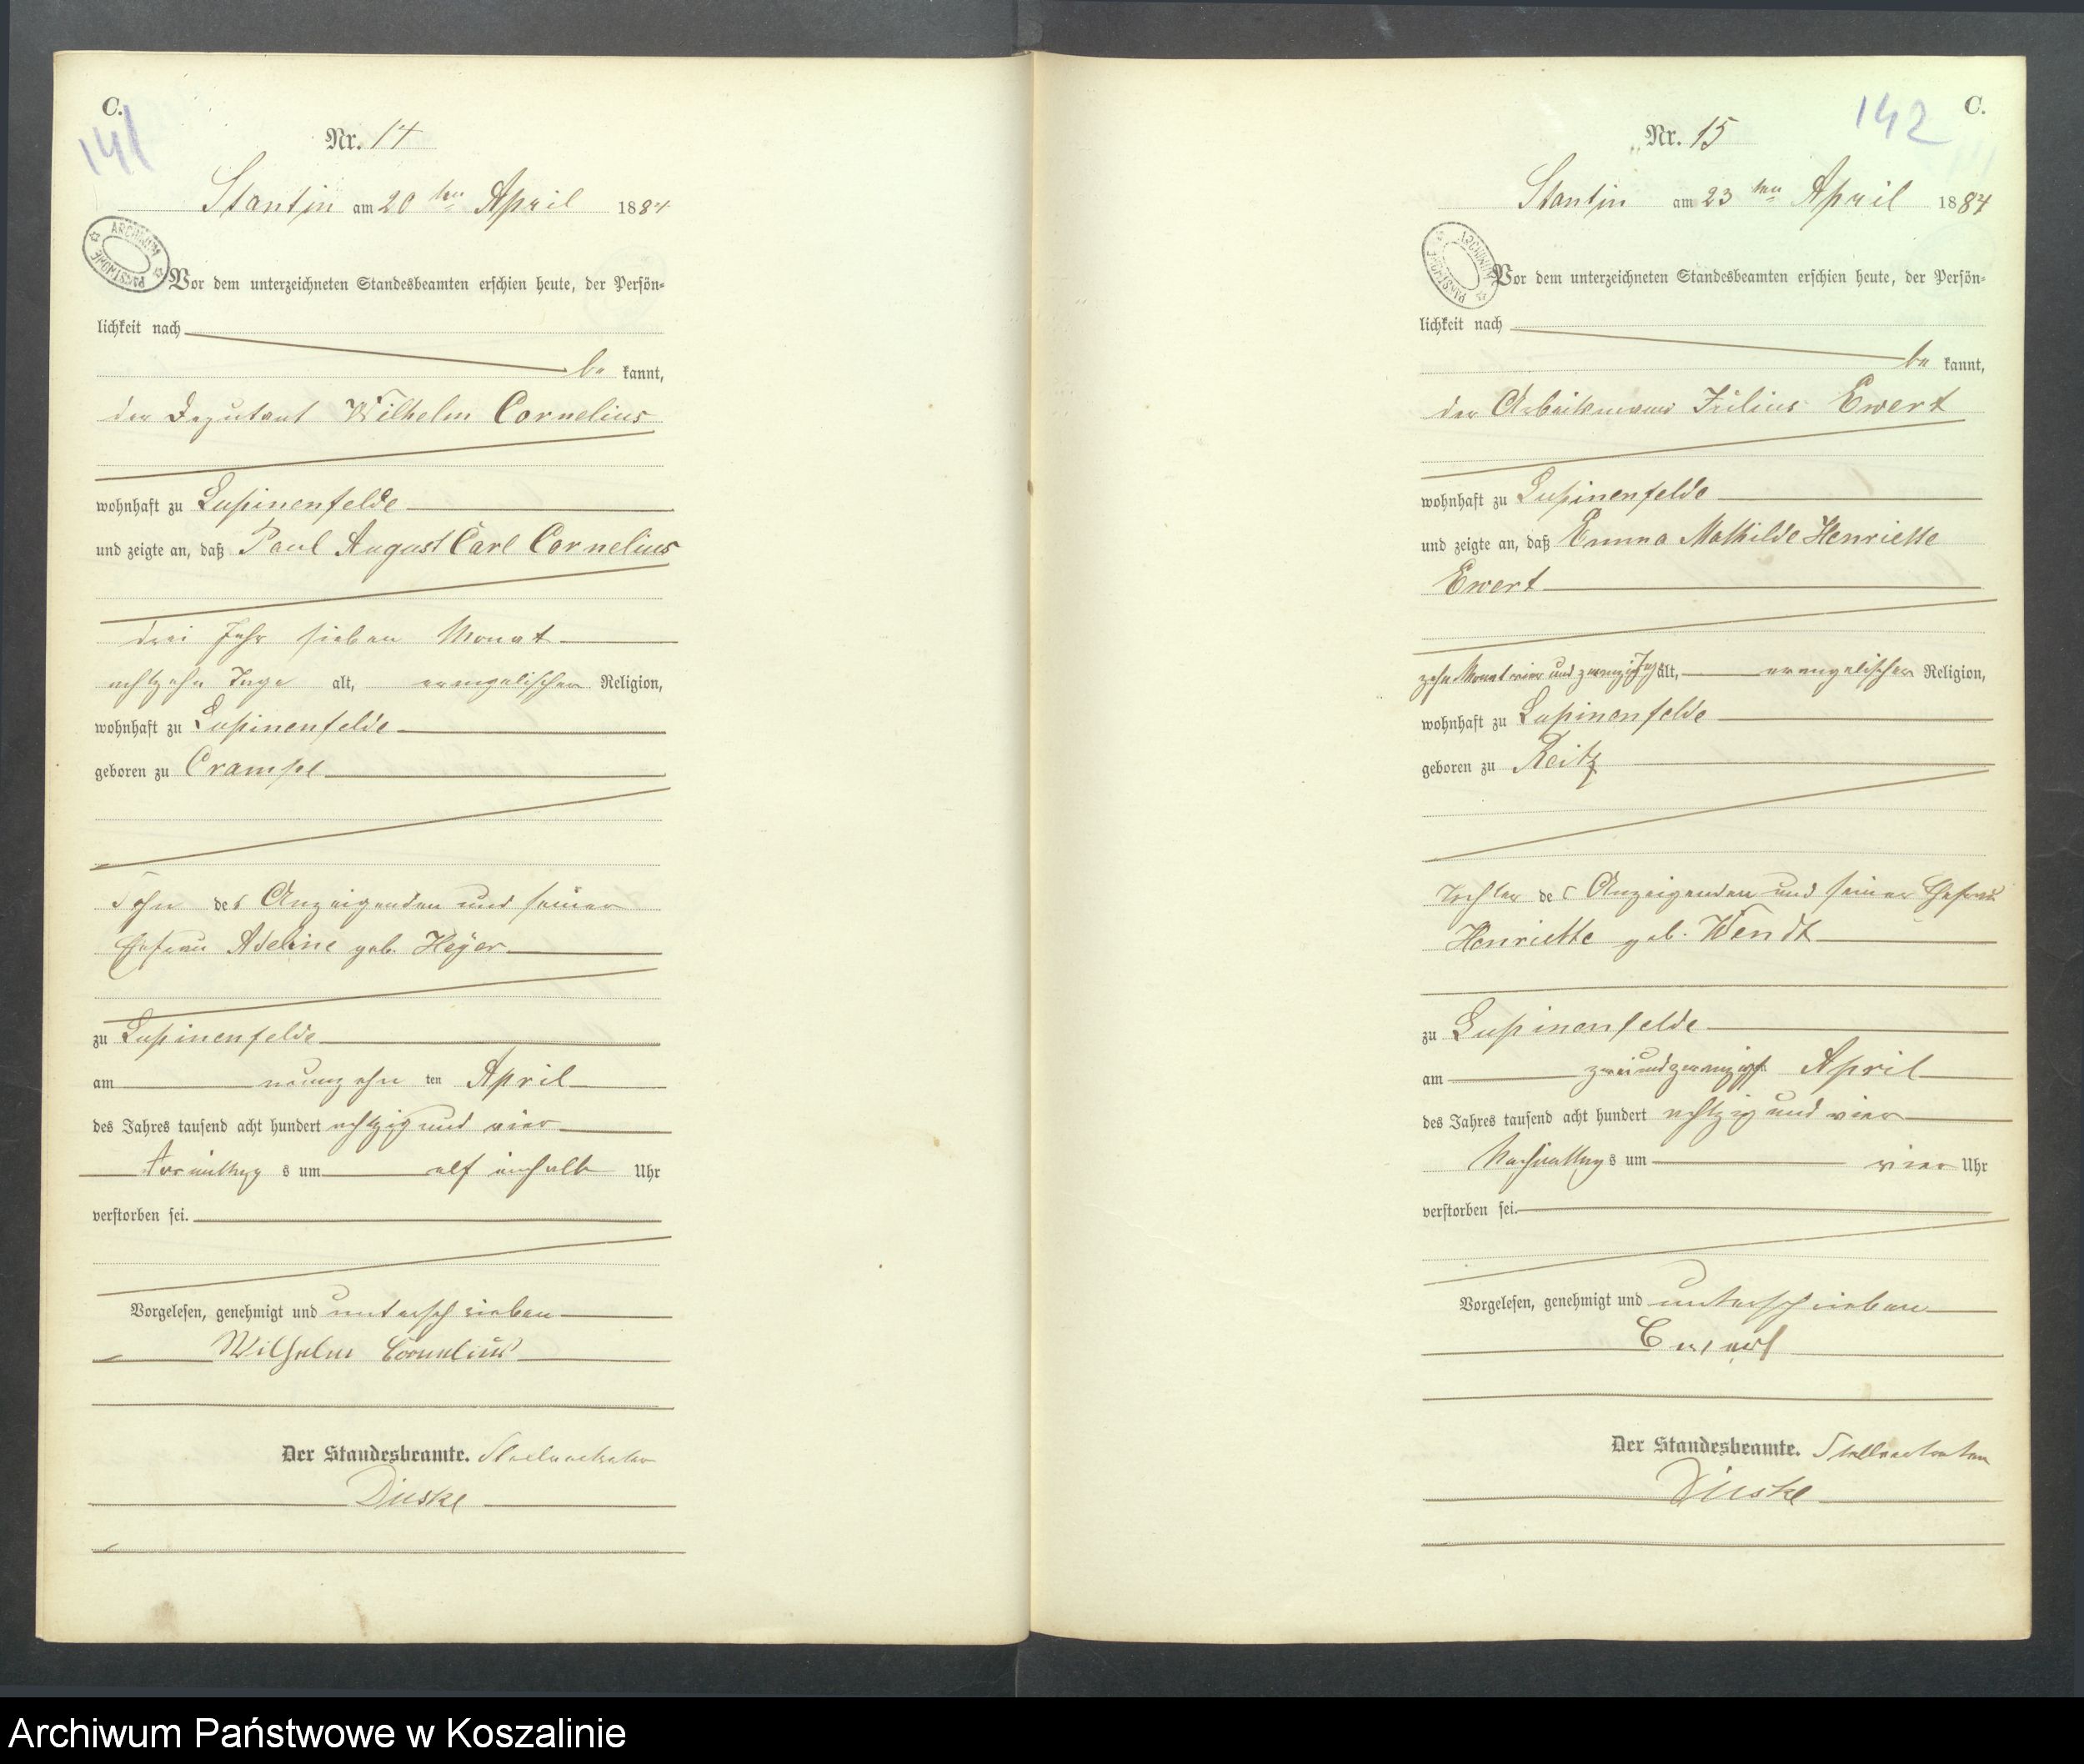 C.
141
Nr. 14
Stantin am 20ten April 1884
ARCHIWUM PAŃSTWOWE
Vor dem unterzeichneten Standesbeamten erschien heute, der Persön-
lichkeit nach
be kannt,
der Deputant Wilhelm Cornelius
wohnhaft zu Lupinenfelde
und zeigte an, daß Paul August Carl Cornelius
drei Jahr sieben Monat
achtzehn Tage alt, evangelischer Religion,
wohnhaft zu Lupinenfelde
geboren zu Crampe
Sohn des Anzeigenden und seiner
Ehefrau Adeline geb. Heyer
zu Lupinenfelde
am neunzehn ten April
des Jahres tausend acht hundert achtzig und vier
Vormittags um elf einhalb Uhr
verstorben sei.
Vorgelesen, genehmigt und unterschrieben
Wilhelm Cornelius
Der Standesbeamte. Stellvertreter
Dieske
C.
142
Nr. 15
Stantin am 23ten April 1884
ARCHIWUM PAŃSTWOWE
Vor dem unterzeichneten Standesbeamten erschien heute, der Persön-
lichkeit nach
be kannt,
der Arbeitsmann Julius Ewert
wohnhaft zu Lupinenfelde
und zeigte an, daß Emma Mathilde Henriette
Ewert
zehn Monat vier und zwanzig Tage alt, evangelischer Religion,
wohnhaft zu Lupinenfelde
geboren zu Reitz
Tochter des Anzeigenden und seiner Ehefrau
Henriette geb. Wendt
zu Lupinenfelde
am zwei und zwanzigst April
des Jahres tausend acht hundert achtzig und vier
Nachmittags um vier Uhr
verstorben sei.
Vorgelesen, genehmigt und unterschrieben
Ewert
Der Standesbeamte. Stellvertreter
Dieske
Archiwum Państwowe w Koszalinie